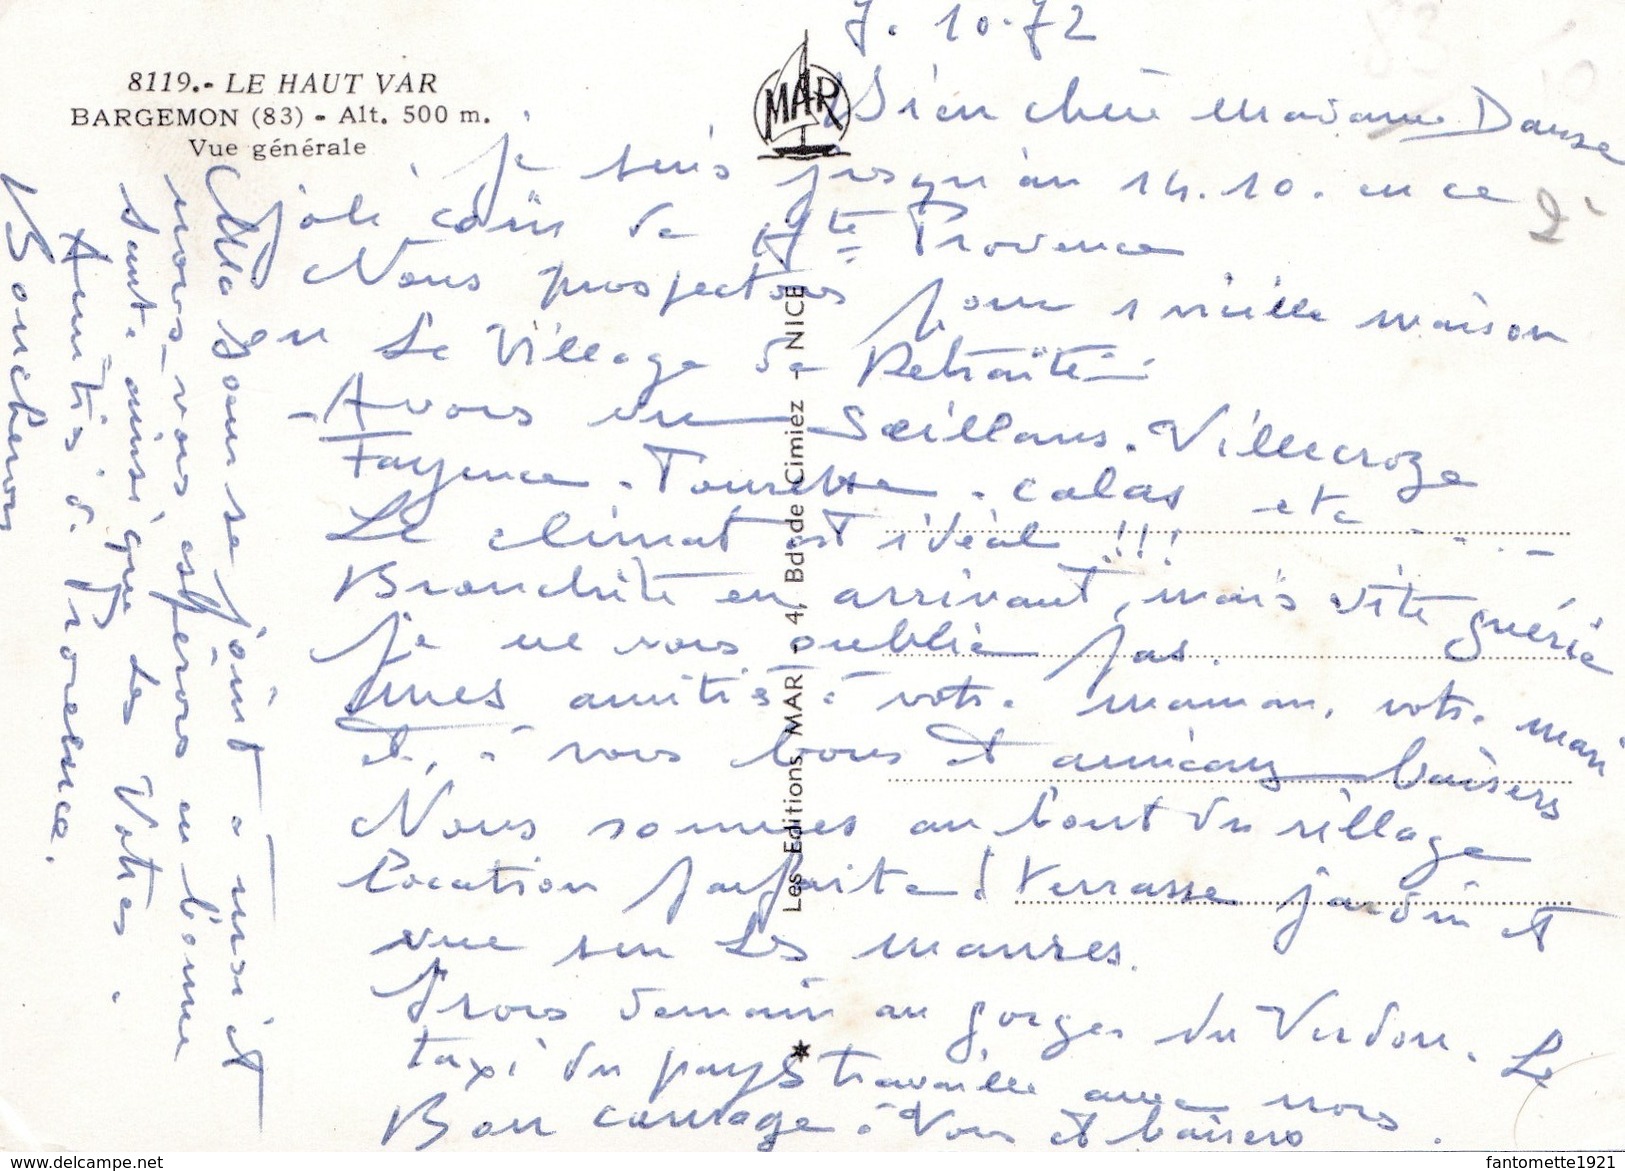 8119.- LE HAUT VAR
BARGEMON (83) - Alt. 500 m.
Vue générale
MAR
Les Editions MAR - 4, Bd de Cimiez - NICE
7.10.72
Bien chère Madame Danse
je suis jusqu'au 14.10. en ce
joli coin de Hte Provence
Nous prospectons pour 1 vieille maison
en Le Village de Retraite
- Avons vu Seillans. Villecroze
Fayence. Tourette. Calas etc ....
Le climat est idéal !!!
Bronchite en arrivant, mais vite guérie
je ne vous oublie pas.
mes amitiés à votre maman, votre mari
et, à vous bons et amicaux baisers
Nous sommes au bout du village
location parfaite! terrasse jardin et
vue sur Les maures.
Irons demain au gorges du Verdon. Le
taxi du pays travaille avec nous.
Bon courage à Vous et baisers
Ma soeur se joint à moi et
nous vous espérons en bonne
santé ainsi que les Votres.
Amitiés de Provence.
fantomette1921
www.delcampe.net